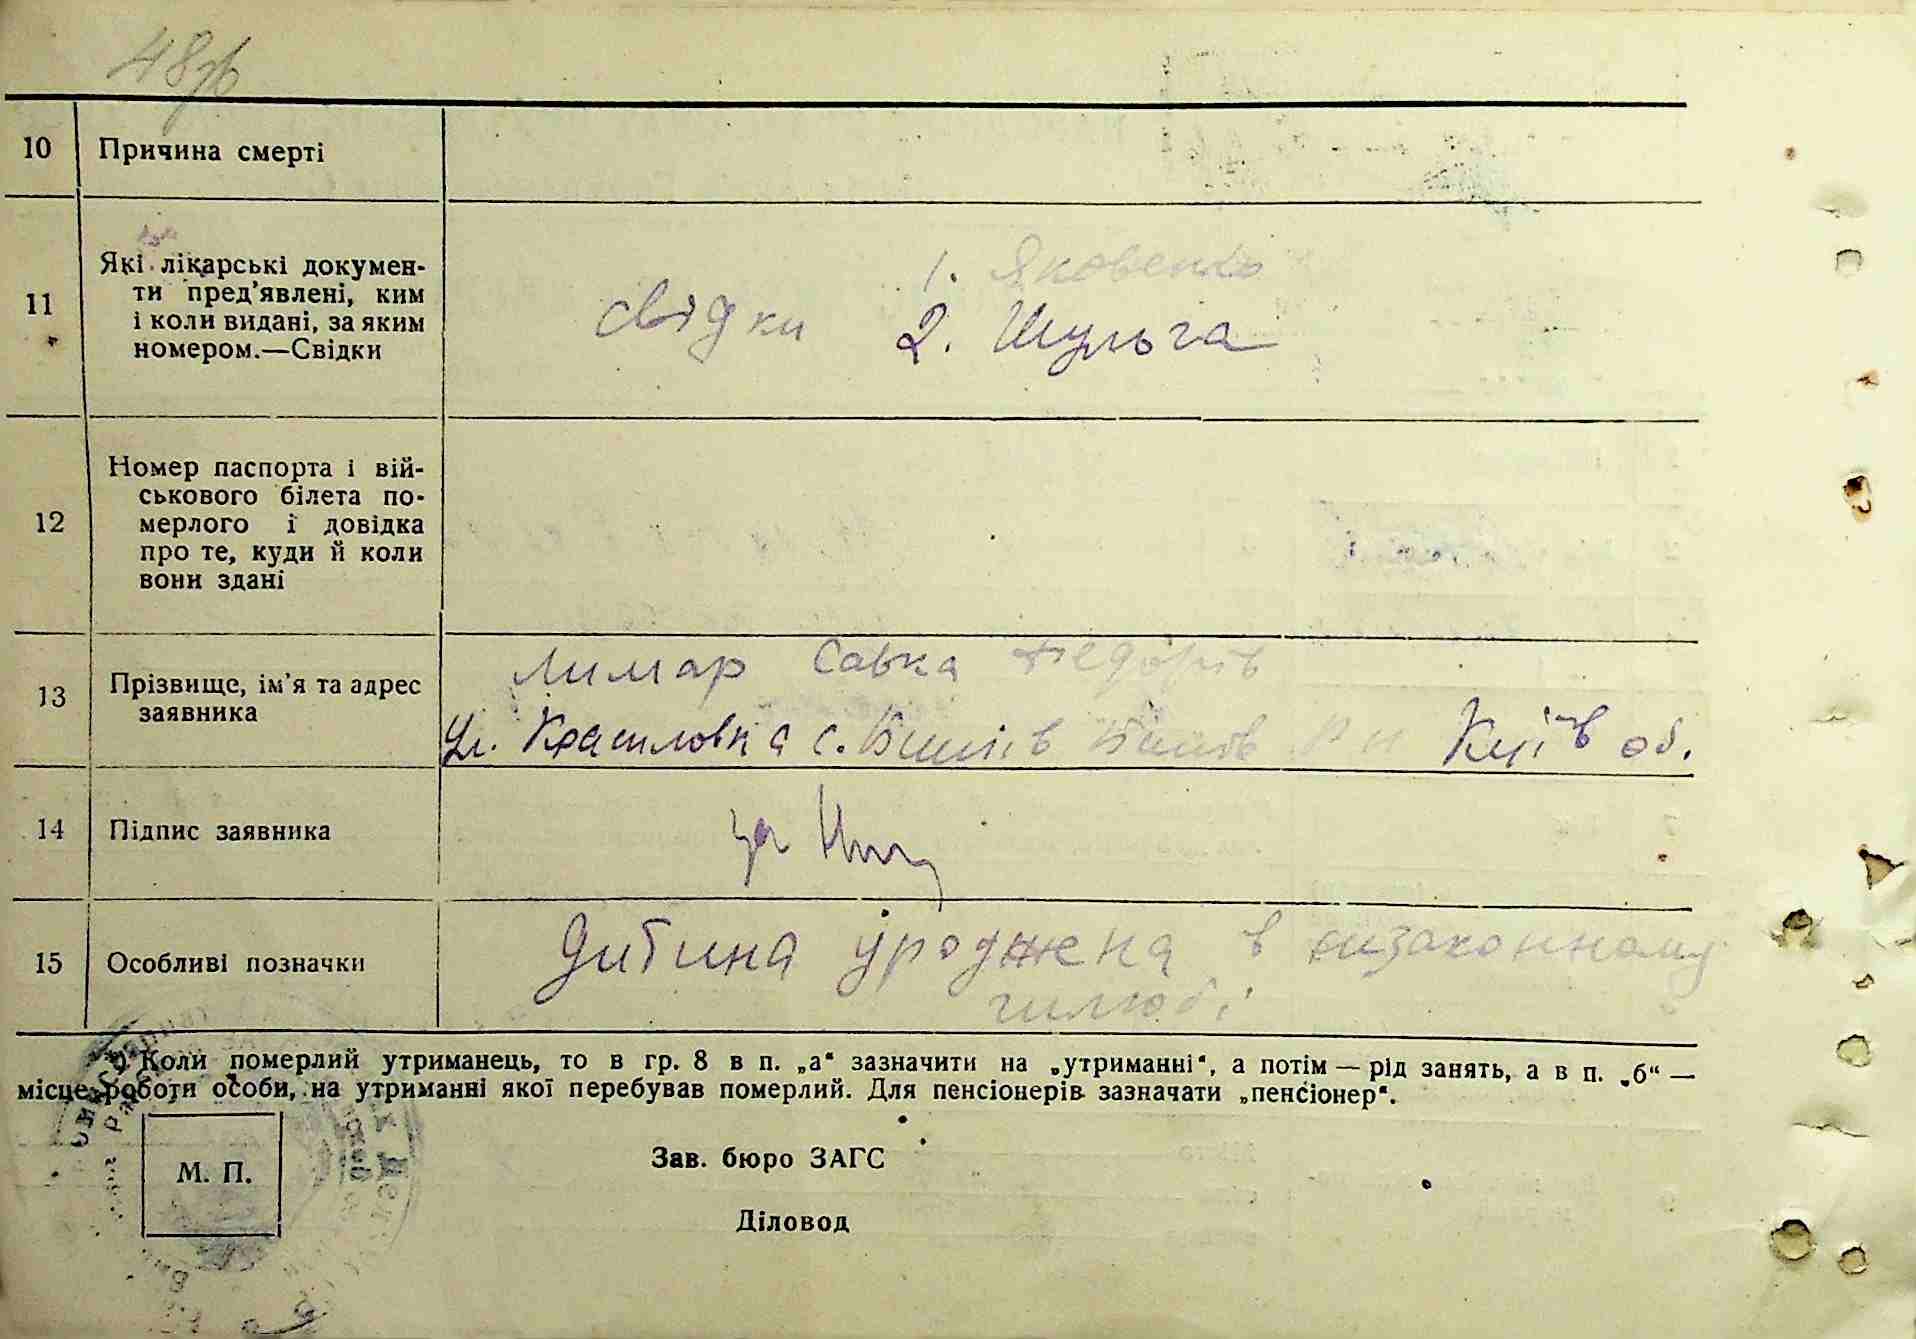 48зв
10 Причина смерті
11 Які лікарські докумен-
ти пред'явлені, ким
і коли видані, за яким
номером.—Свідки
свідки 1. Яковенко
2. Шульга
12 Номер паспорта і вій-
ськового білета по-
мерлого і довідка
про те, куди й коли
вони здані
13 Прізвище, ім'я та адрес
заявника
Лимар Савка Федорів
Ул. Красиловка с. Київ об.
14 Підпис заявника
за
15 Особливі позначки
Дитина уроджена в незаконному
шлюбі
*) Коли померлий утриманець, то в гр. 8 в п. „а“ зазначити на „утриманні“, а потім — рід занять, а в п. „б“ —
місце роботи особи, на утриманні якої перебував померлий. Для пенсіонерів зазначати „пенсіонер“.
М. П.
Зав. бюро ЗАГС
Діловод